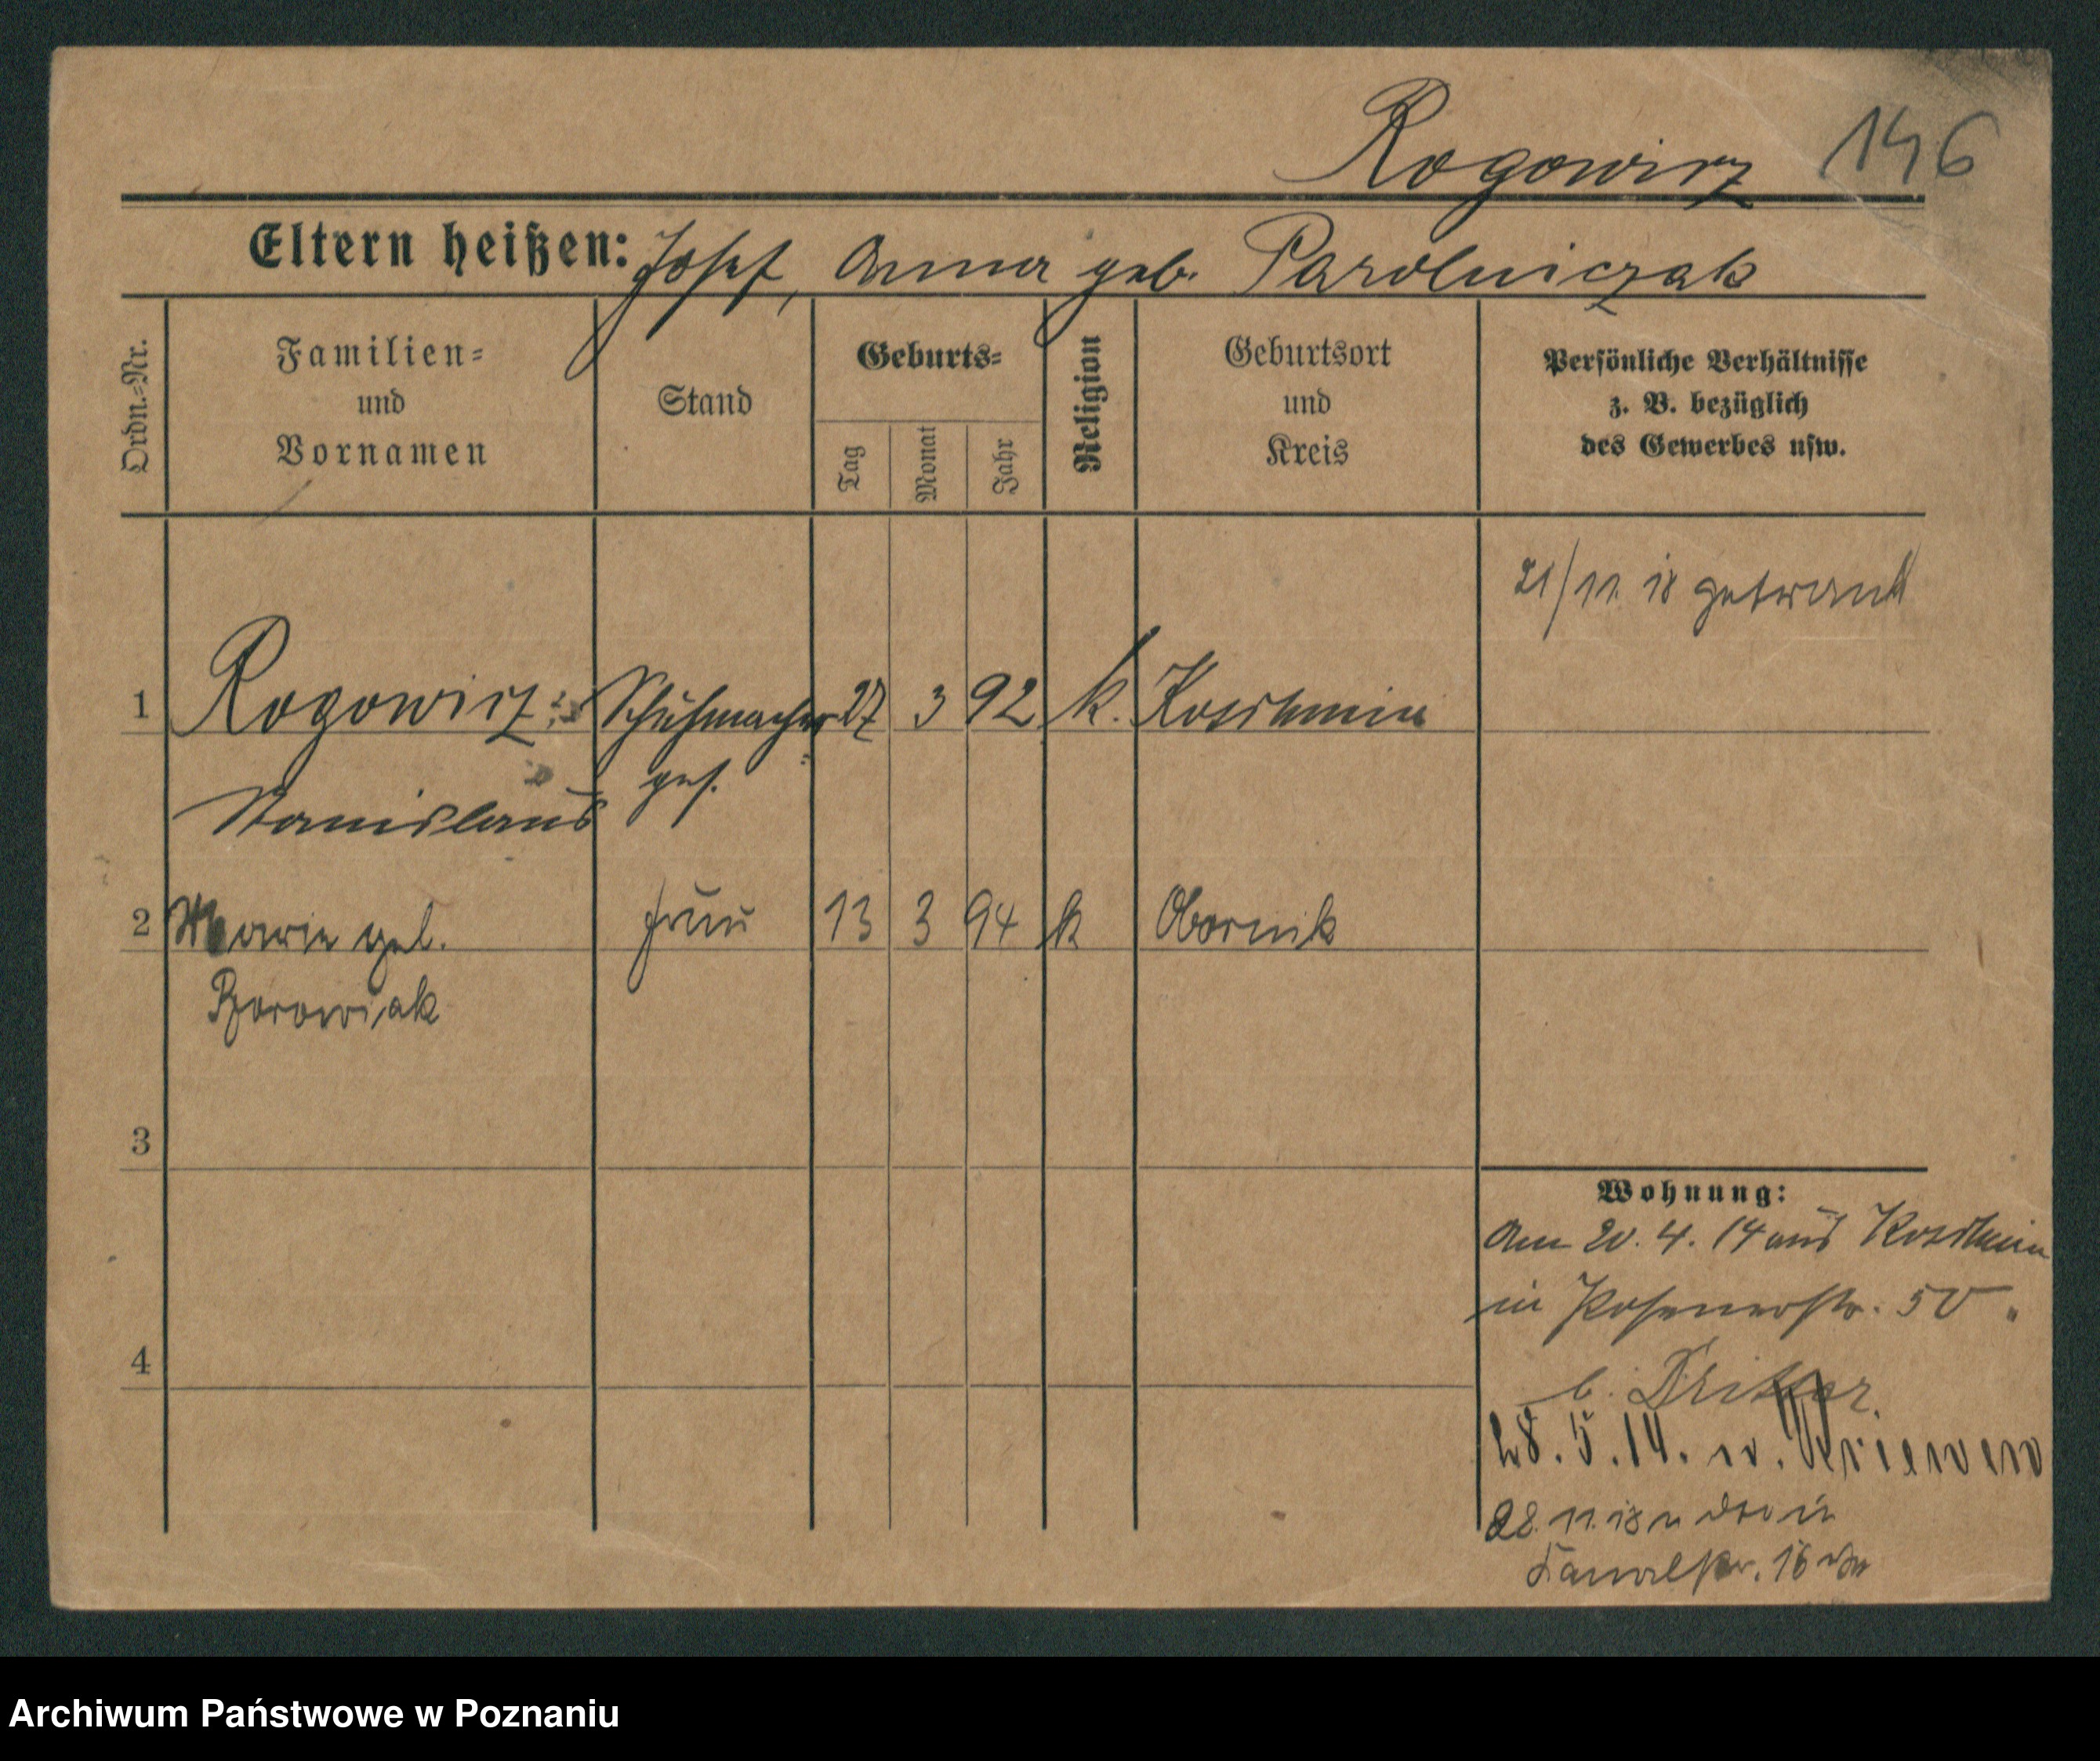 Rogowicz 146
Eltern heißen: Josef, Anna geb. Parolniczak
Ordn.-Nr.
Familien-
und
Vornamen
Stand
Geburts-
Tag
Monat
Jahr
Religion
Geburtsort
und
Kreis
Persönliche Verhältnisse
z. B. bezüglich
des Gewerbes usw.
21/11. 18 getraut
1 Rogowicz Schuhmacher 27 3 92 k. Koschmin
Stanislaus ges.
2 Marie geb. Frau 13 3 94 k Obornik
Borowiak
3
4
Wohnung:
Am 20. 4. 14 aus Koschmin
in Posenerstr. 50.
b.
28. 5. 14. n. Kriewen
28. 11. 18
Kanalstr. 16
Archiwum Państwowe w Poznaniu